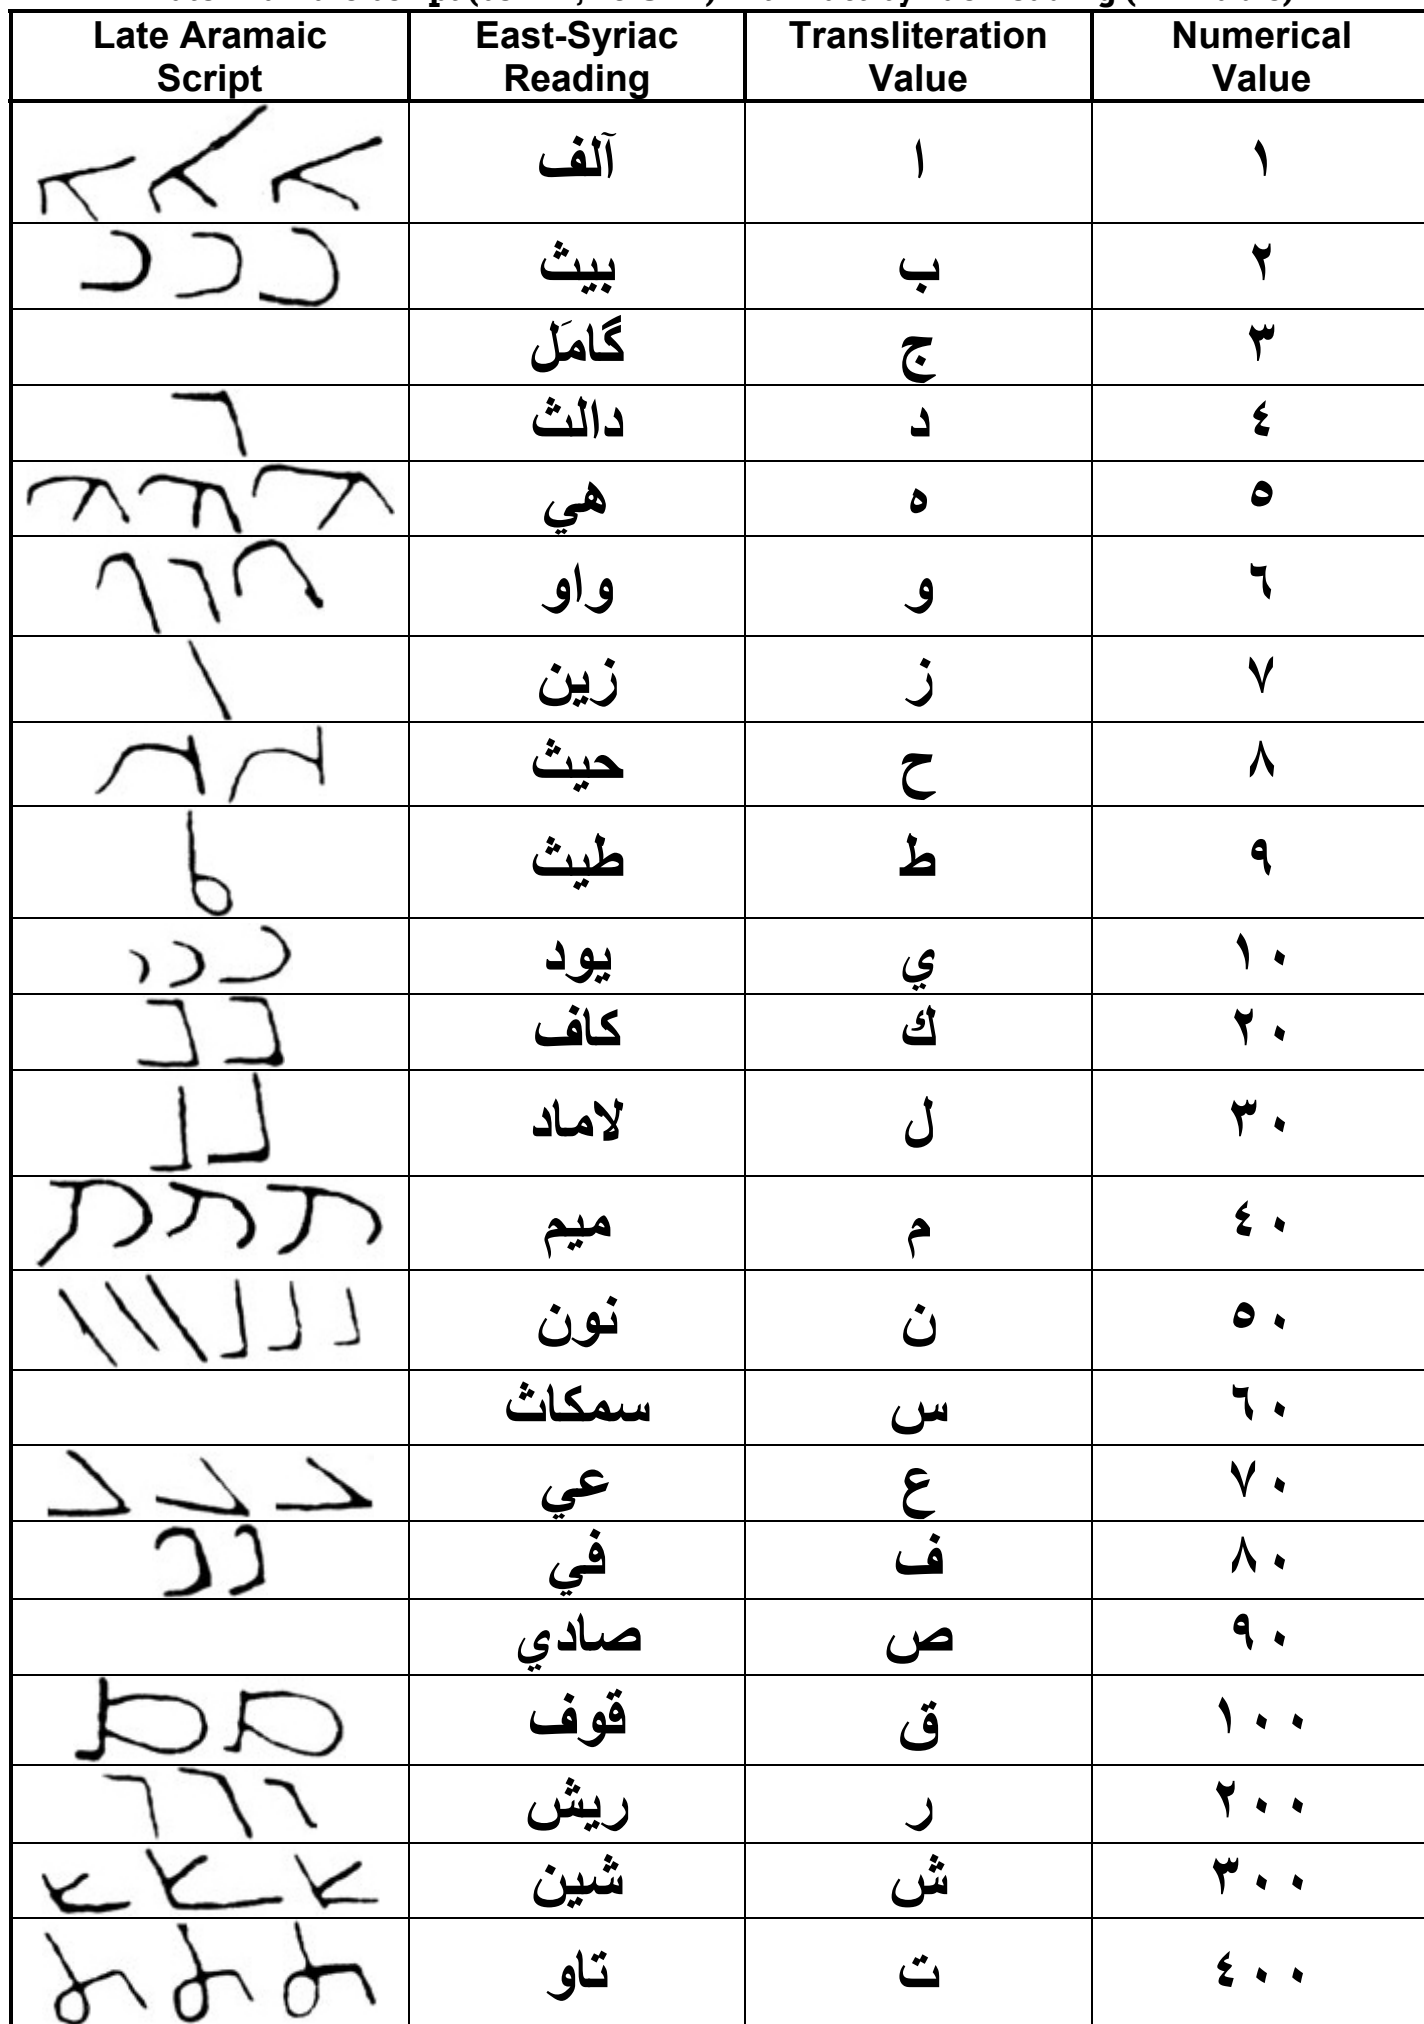 Late Aramaic Script East-Syriac Reading Transliteration Value Numerical Value
آلف ا ١
بيث ب ٢
گامَل ج ٣
دالث د ٤
هي ه ٥
واو و ٦
زين ز ٧
حيث ح ٨
طيث ط ٩
يود ي ١٠
كاف ك ٢٠
لاماد ل ٣٠
ميم م ٤٠
نون ن ٥٠
سمكاث س ٦٠
عي ع ٧٠
في ف ٨٠
صادي ص ٩٠
قوف ق ١٠٠
ريش ر ٢٠٠
شين ش ٣٠٠
تاو ت ٤٠٠